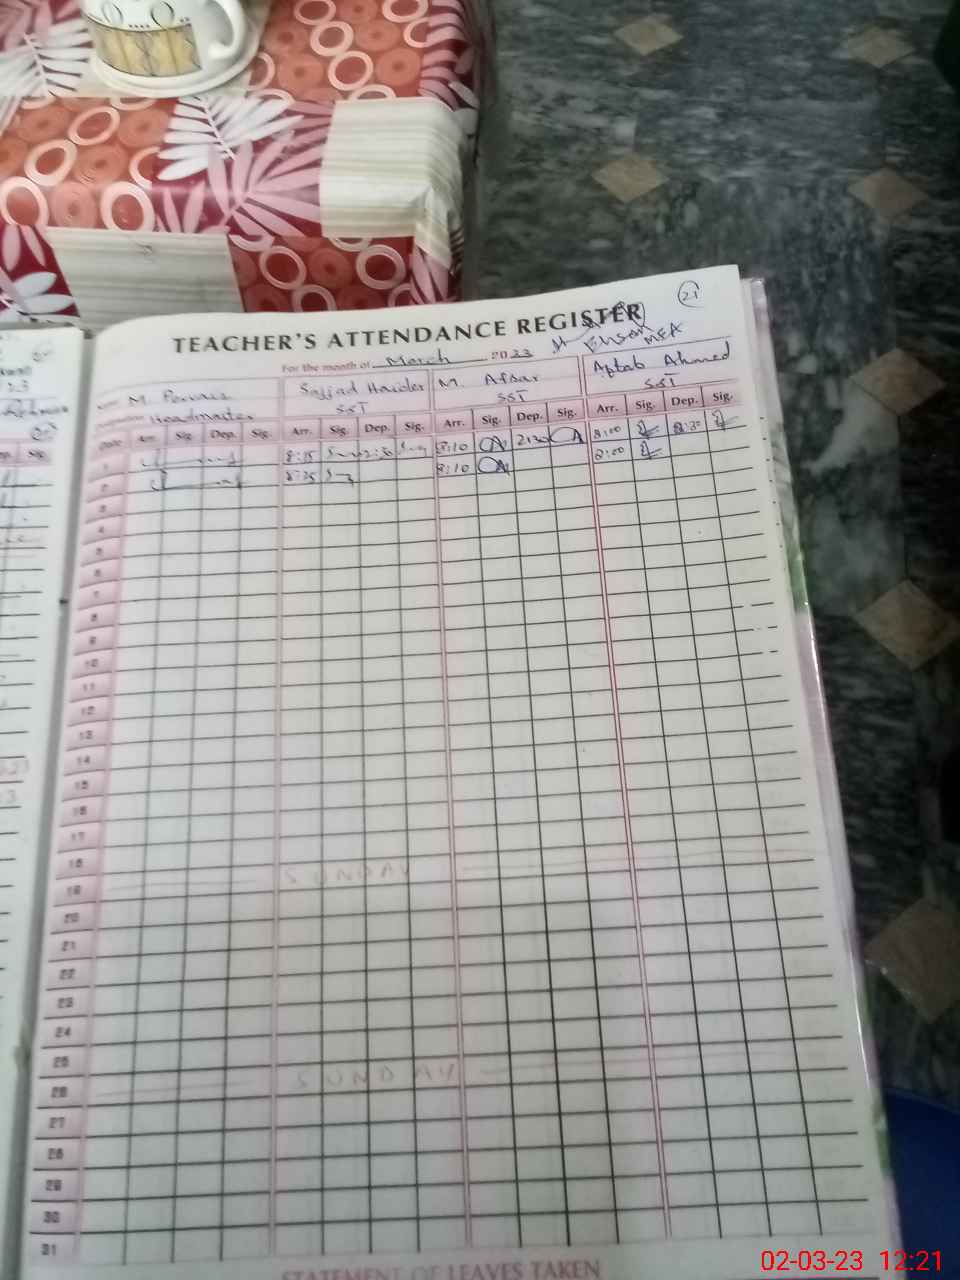 21
TEACHER'S ATTENDANCE REGISTER
For the month of March 2023
Ehsan MEA
Name M. Pervaiz Sajjad Haider M. Afsar Aftab Ahmed
Designation Headmaster SST SST SST
Date Arr. Sig. Dep. Sig. Arr. Sig. Dep. Sig. Arr. Sig. Dep. Sig. Arr. Sig. Dep. Sig.
1 8:15 2:30 8:10 2:30 8:00 2:30
2 8:25 8:10 8:00
3
4
5
6
7
8
9
10
11
12
13
14
15
16
17
18
19 SUNDAY
20
21
22
23
24
25
26 SUNDAY
27
28
29
30
31
STATEMENT OF LEAVES TAKEN
02-03-23 12:21